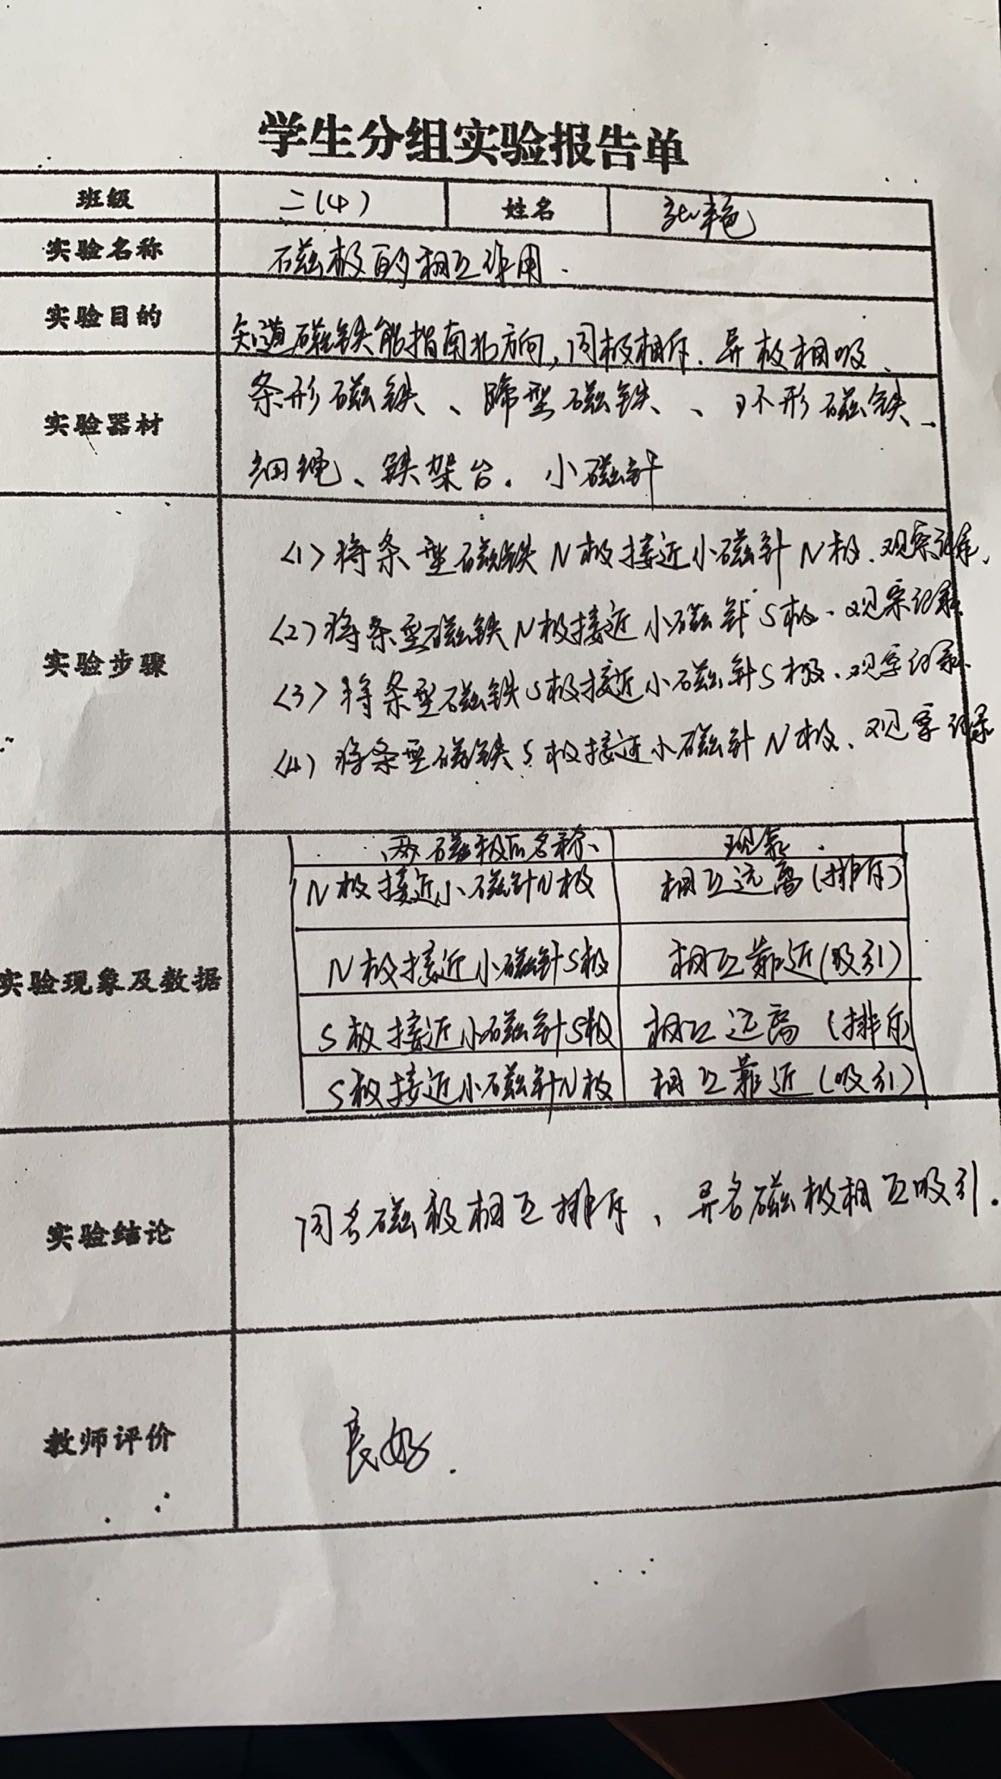 学生分组实验报告单
班级 二(4) 姓名 张艳
实验名称 磁极的相互作用.
实验目的 知道磁铁能指南北方向,同极相斥.异极相吸、
实验器材 条形磁铁、蹄型磁铁、、环形磁铁、
细绳、铁架台.小磁针
实验步骤
(1)将条型磁铁N极接近小磁针N极.观察记录.
(2)将条型磁铁N极接近小磁针S极.观察记录.
(3)将条型磁铁S极接近小磁针S极.观察记录.
(4)将条型磁铁S极接近小磁针N极.观察记录
实验现象及数据
两磁极的名称、 现象.
N极接近小磁针N极 相互远离(排斥)
N极接近小磁针S极 相互靠近(吸引)
S极接近小磁针S极 相互远离(排斥)
S极接近小磁针N极 相互靠近(吸引)
实验结论 同名磁极相互排斥、异名磁极相互吸引.
教师评价 良好.